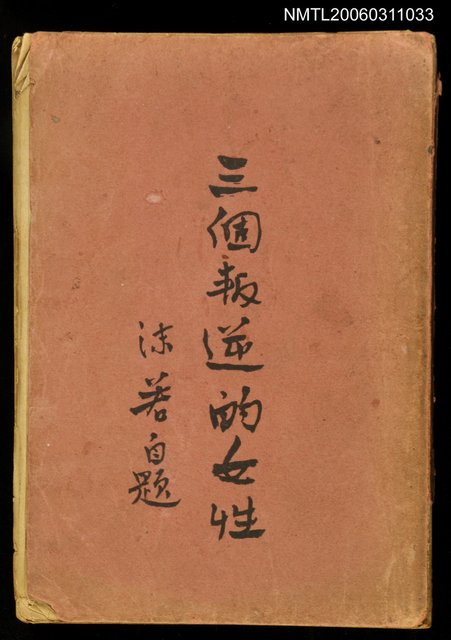 NMTL20060311033
三個叛逆的女性
沫若自題